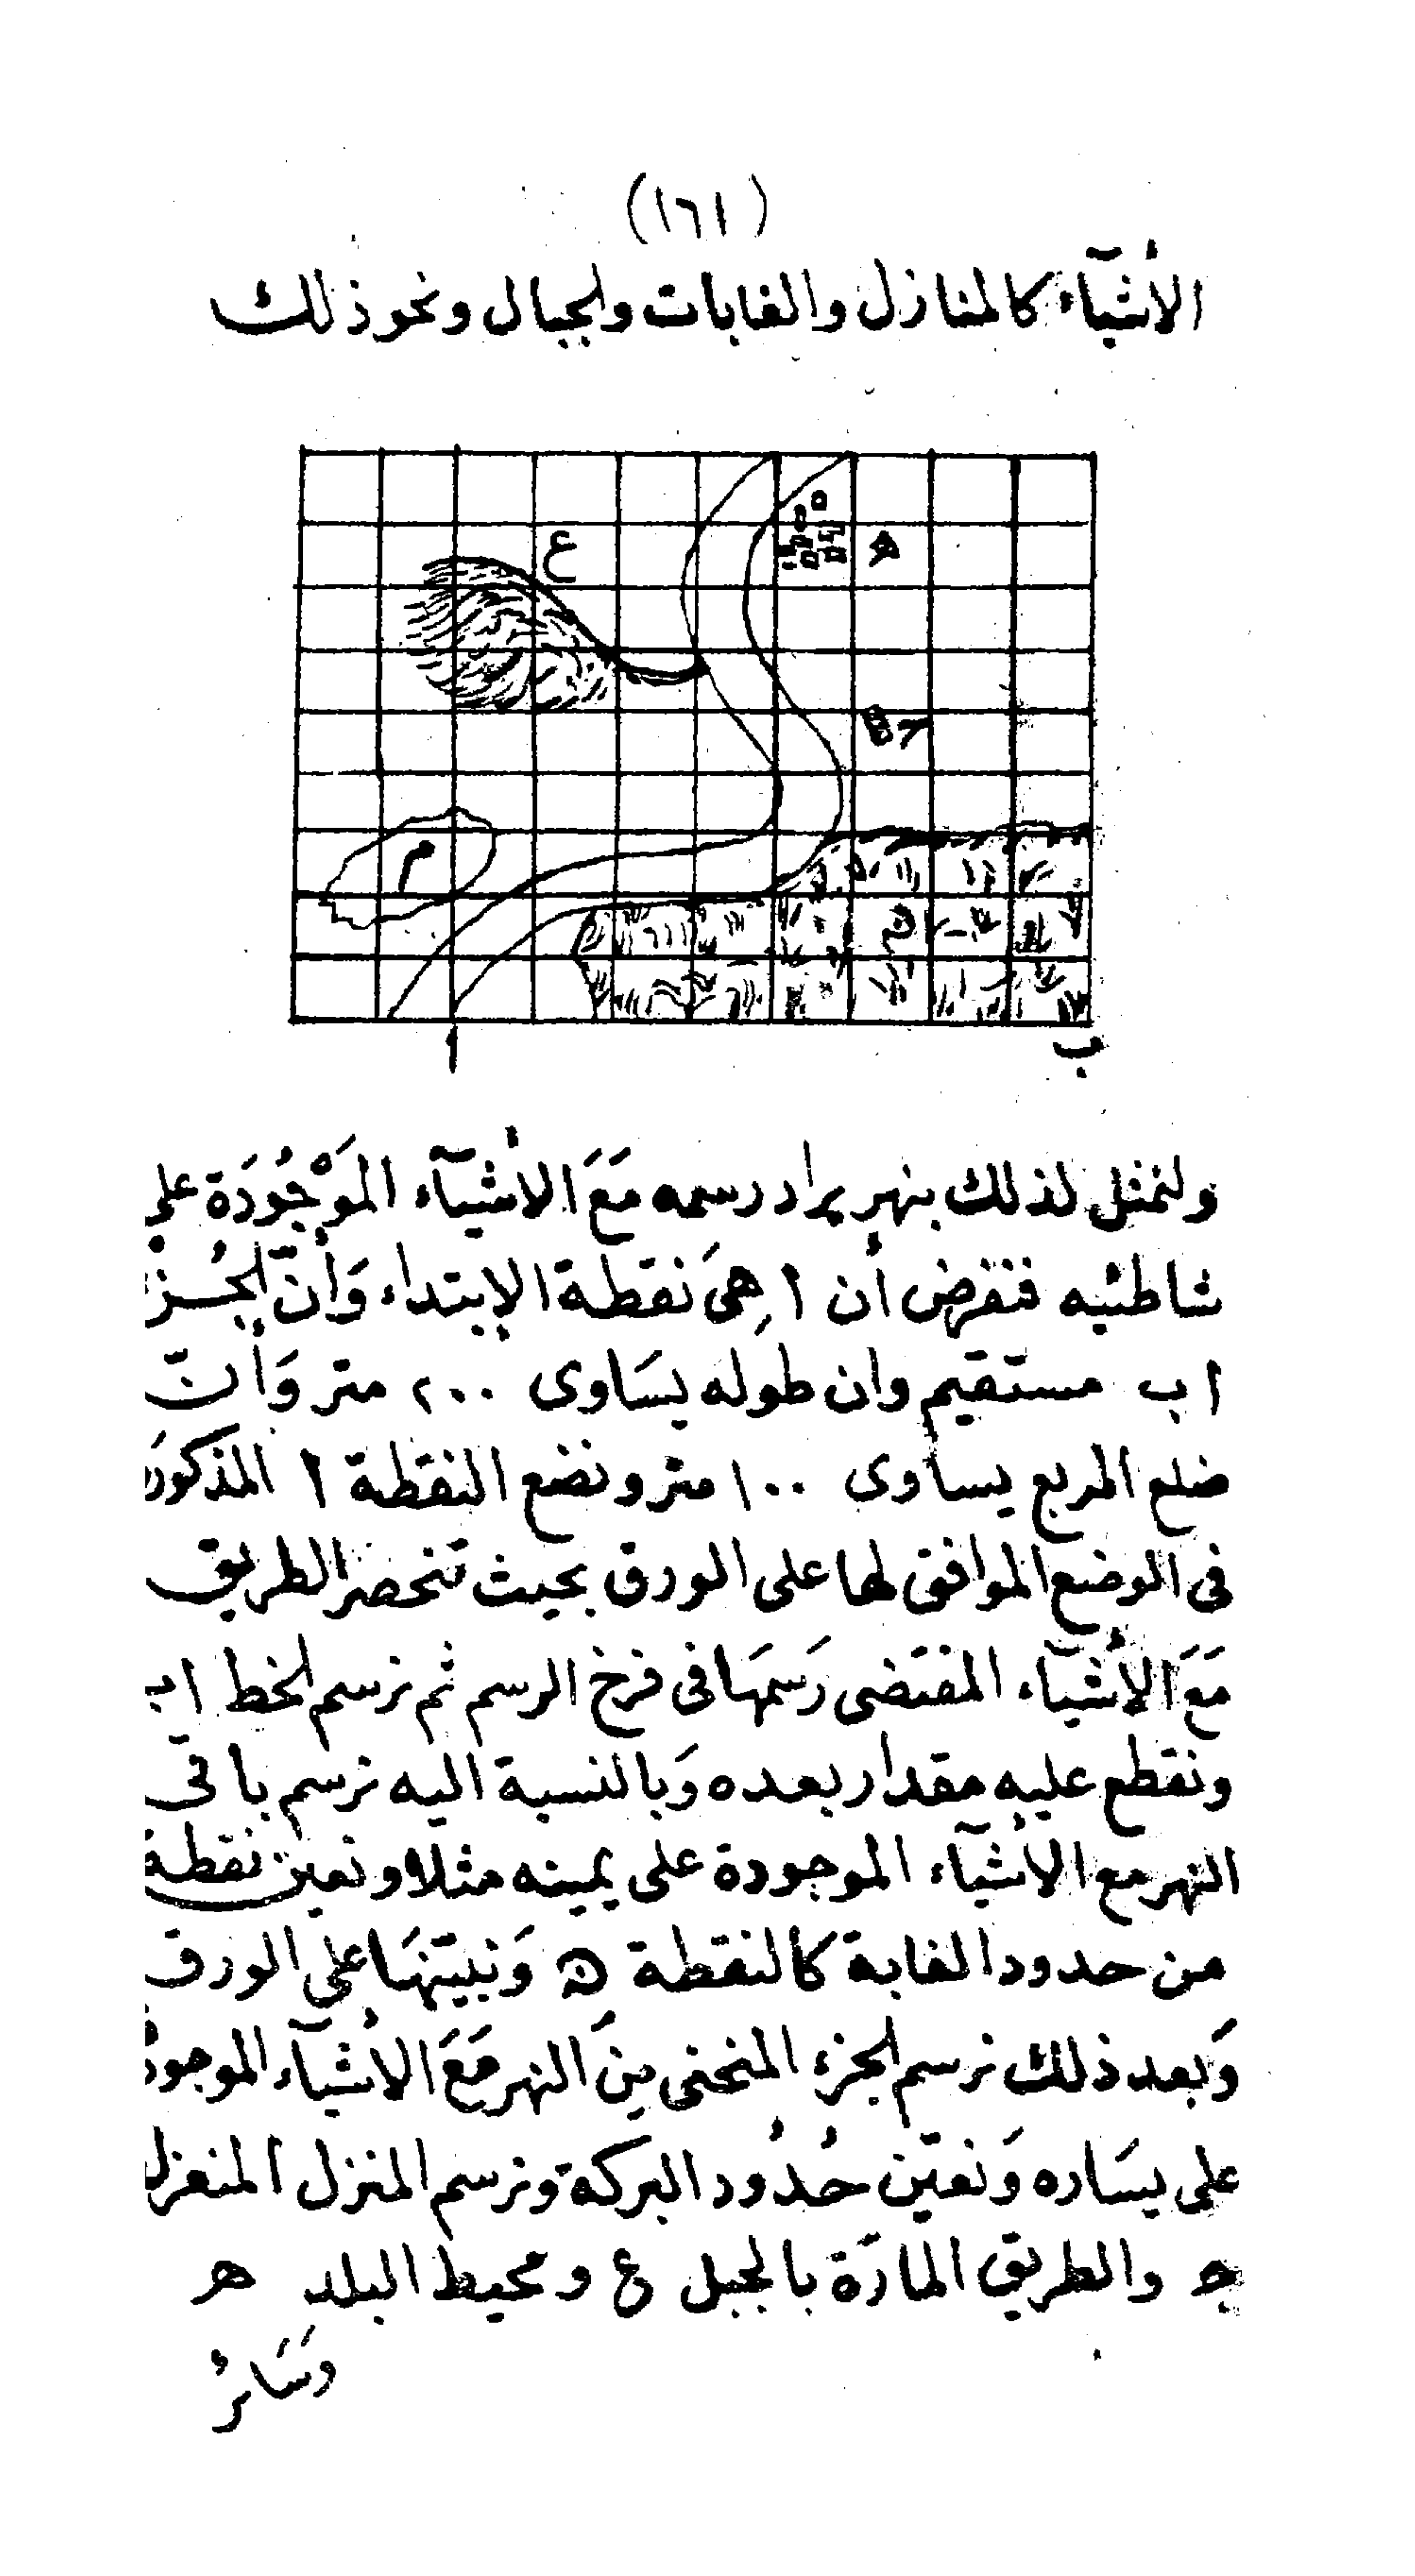 (١٦١)
الأشيآء كالمنازل والغابات والجبال ونحو ذلك
ع
ه
ح
م
ن
ا
ب
ولنمثل لذلك بنهر يراد رسمه مَعَ الأشيآء المَوْجُودَة على
شاطئيه فنفرض أن ا هِىَ نقطة الإبتداء وَأنّ الجُز
ا ب مستقيم وان طوله يسَاوى ٢٠٠ متر وَأنّ
ضلع المربع يساوى ١٠٠ متر ونضع النقطة ا المذكورَ
فى الموضع الموافق لها على الورق بحيث تنحصر الطريق
مَعَ الأشيآء المقتضى رَسمهَا فى فرخ الرسم ثم نرسم الخط اب
ونقطع عليه مقدار بعده وَبالنسبة اليه نرسم باقى
النهر مع الأشيآء الموجودة على يمينه مثلا ونعين نقطة
من حدود الغابة كالنقطة ن وَنبيّنهَا على الورق
وَبعد ذلك نرسم الجزء المنحنى مِنَ النهر مَعَ الأشيآء الموجود
على يسَاره وَنعيّن حُدُود البركة ونرسم المنزل المنعزل
ح والطريق المارّة بالجبل ع ومحيط البلد ه
وسَائرُ